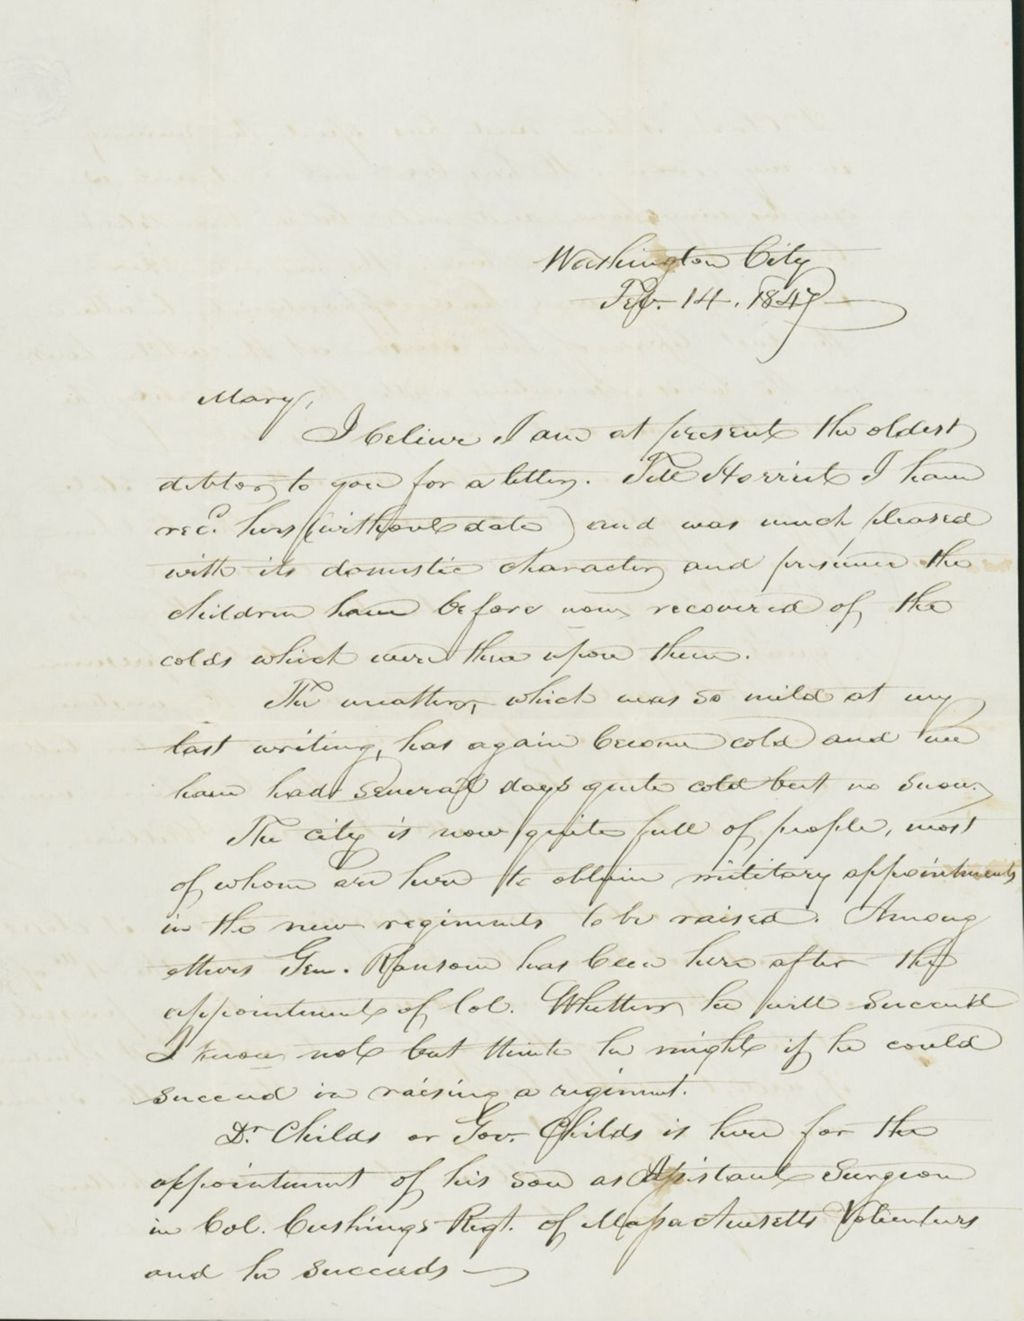 Washington City
Feb. 14. 1847
Mary,
I believe I am at present the oldest
debtor to you for a letter. Tell Harriet I have
recd. hers (without date) and was much pleased
with its domestic character and presume the
children have before now recovered of the
colds which were then upon them.
The weather, which was so mild at my
last writing, has again become cold and we
have had several days quite cold but no snow.
The city is now quite full of people, most
of whom are here to obtain military appointments
in the new regiments to be raised. Among
others Gen. Ransom has been here after the
appointment of Col. Whether he will succeed
I know not but think he might if he could
succeed in raising a regiment.
Dr. Childs or Gov. Childs is here for the
appointment of his son as Assistant Surgeon
in Col. Cushings Regt. of Massachusetts Volenturs
and he succeeds —